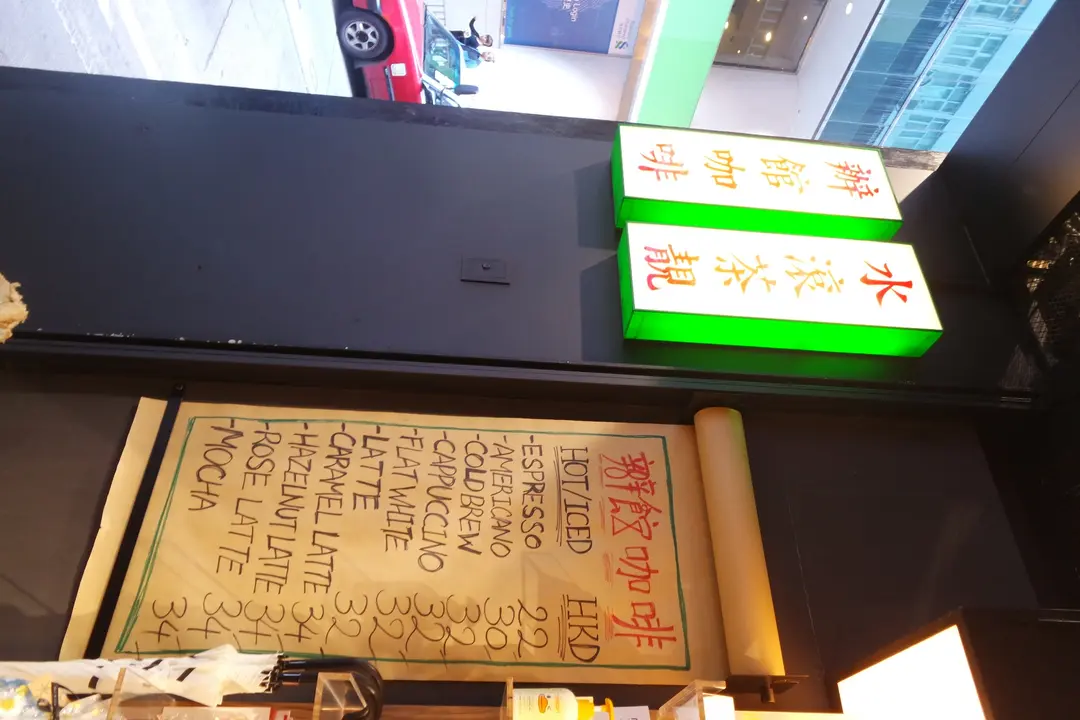 辦館咖啡
水滾茶靚
辦館咖啡
HOT/ICED HKD
-ESPRESSO 22,-
-AMERICANO 30,-
-COLD BREW 32,-
-CAPPUCCINO 32,-
-FLAT WHITE 32,-
-LATTE 32,-
-CARAMELL LATTE 34,-
-HAZELNUT LATTE 34,-
-ROSE LATTE 34,-
-MOCHA 34,-
Login